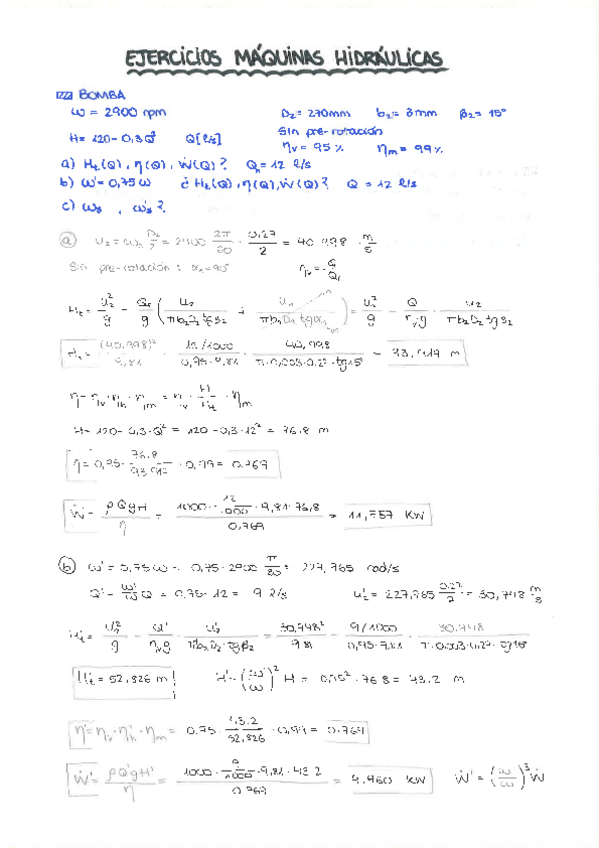 EJERCICIOS MÁQUINAS HIDRÁULICAS
BOMBA
ω = 2900 rpm D₂= 270mm b₂= 3mm β₂= 15°
Sin pre-rotación
H= 120-0,3Q² Q[l/s] ηv = 95% ηm = 99%
a) Ht(Q), η(Q), Ẇ(Q)? Q = 12 l/s
b) ω' = 0,75ω ¿ Ht(Q), η(Q), Ẇ(Q)? Q = 12 l/s
c) ωs , ω's ?
a) u₂ = ω D₂/2 = 2900 2π/60 · 0,27/2 = 40,998 m/s
Sin pre-rotación: α₁=90° ηv = Q/Qr
Ht = u₂²/g - Qr/g (u₂/πb₂D₂tgβ₂ + u₁/πb₁D₁tgα₁) = u₂²/g - Q/ηvg · u₂/πb₂D₂tgβ₂
Ht = (40,998)²/9,81 - 12/1000/0,95·9,81 · 40,998/π·0,003·0,27·tg15 =
η = ηv · ηh · ηm = ηv · H/Ht · ηm
H = 120 - 0,3·Q² = 120 - 0,3·12² = 76.8 m
0,99 = 0.769
Ẇ = ρQgH/η = 1000 · 12/1000 · 9,81 · 76,8/0,769 = 11,757 KW
b) ω' = 0,75ω = 0,75 · 2900 π/30 = 227,765 rad/s
Q' = ω'/ω Q = 0,75 · 12 = 9 l/s u₂' = 227,765 0,27/2 = 30,748 m/s
Ht' = u₂'²/g - Q'/ηvg · u₂'/πb₂D₂tgβ₂ = 30,748²/9.81 - 9/1000/0,95·9.81 · 30,748/π·0.003·0,27·tg15
Ht' = 52,826 m H' = (ω'/ω)² H = 0,75² · 76.8 = 43.2 m
η' = ηv · ηh' · ηm = 0.95 · 43.2/52,826 · 0,99 = 0.769
Ẇ' = ρQ'gH'/η = 1000 · 9/1000 · 9,81 · 43.2/0.769 = 4.960 KW Ẇ' = (ω'/ω)³ Ẇ